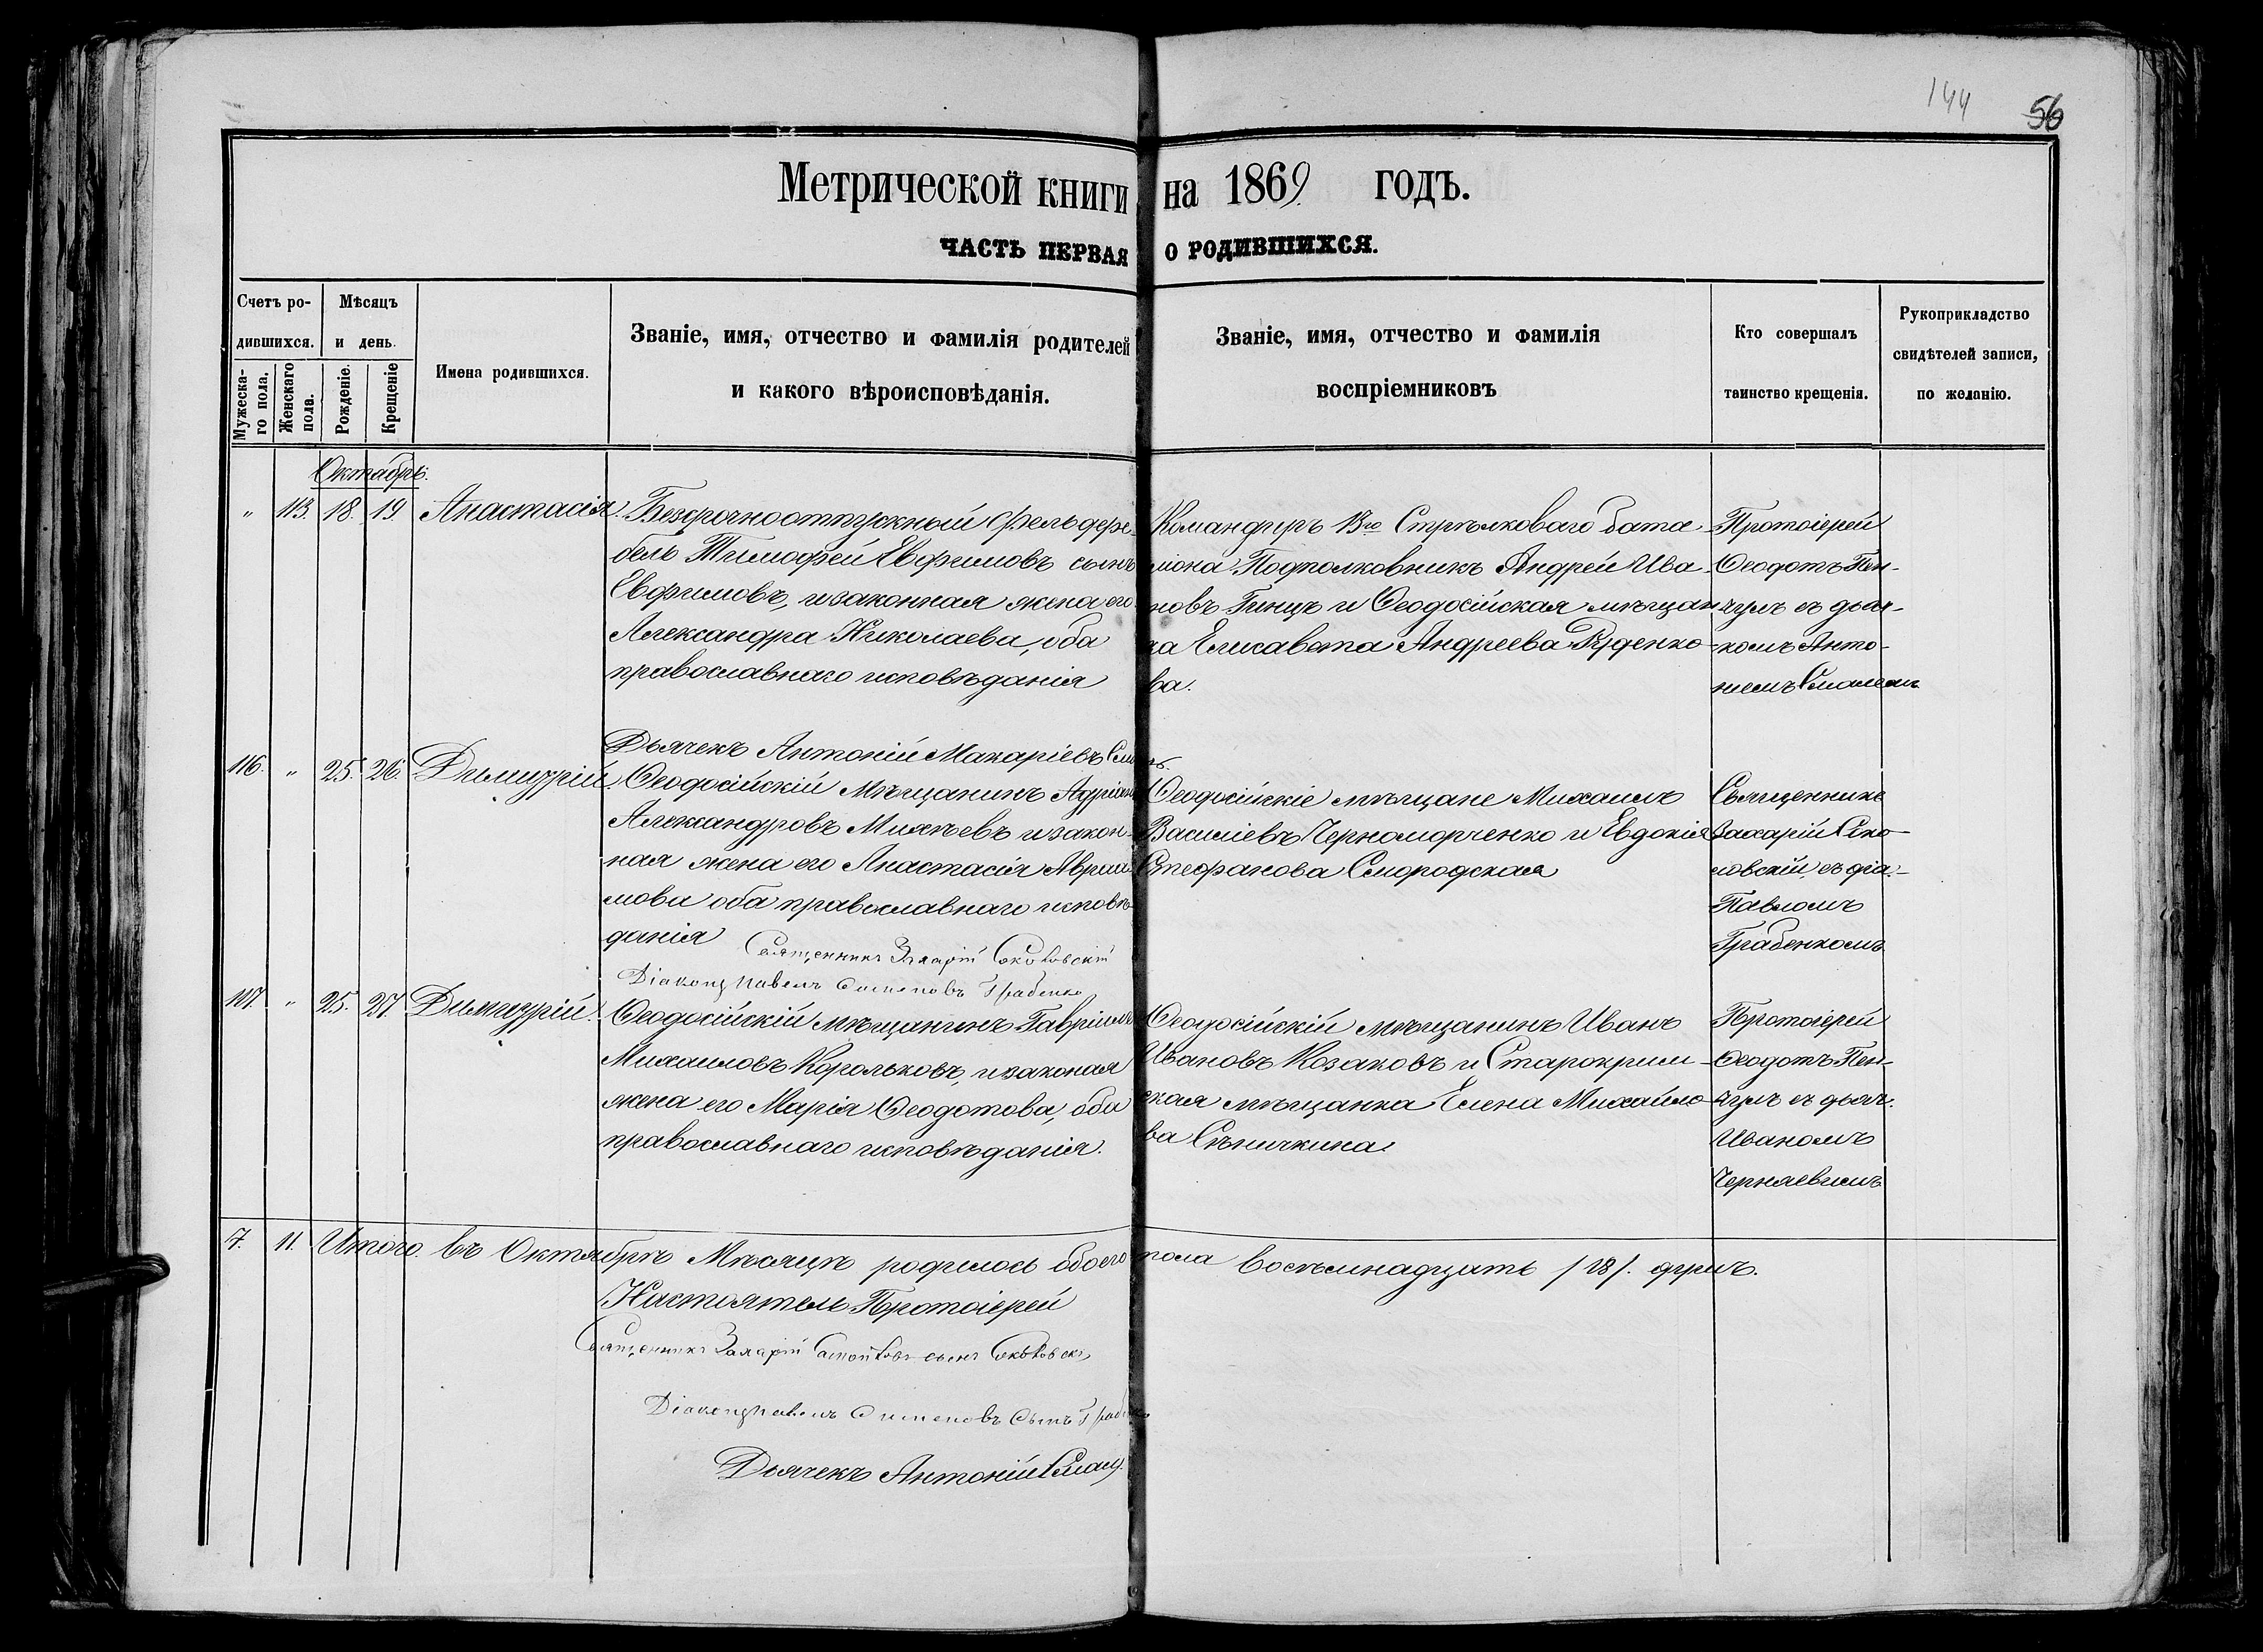 144 56
Метрической книги на 1869 годъ.
ЧАСТЬ ПЕРВАЯ О РОДИВШИХСЯ.
Счетъ ро-
дившихся.
Мужеска-
го пола.
Женскаго
пола.
Мѣсяцъ
и день.
Рожденіе.
Крещеніе
Имена родившихся.
Званіе, имя, отчество и фамилія родителей
и какого вѣроисповѣданія.
Званіе, имя, отчество и фамилія
воспріемниковъ
Кто совершалъ
таинство крещенія.
Рукоприкладство
свидѣтелей записи,
по желанію.
Октябрь.
" 113. 18. 19. Анастасія.
Безсрочноотпускный Фельдфе-
бель Тимофей Евфимовъ сынъ
Евфимовъ, и законная жена его
Александра Николаева, оба
православнаго исповѣданія
Командиръ 13го Стрѣлковаго бата-
ліона Подполковникъ Андрей Ива-
новъ Гинцъ и Ѳеодосійская мѣщан
ка Елисавета Андреева Руденко-
ва.
Протоіерей
Ѳеодотъ Пен-
чулъ съ дьяч-
комъ Анто-
ніемъ
Дьячекъ Антоній Макаріевъ
116. " 25. 26. Димитрій.
Ѳеодосійскій Мѣщанинъ Адріанъ
Александровъ Михѣевъ и закон-
ная жена его Анастасія Авраа-
мова оба православнаго исповѣ-
данія
Ѳеодосійскіе мѣщане Михаилъ
Василіевъ Черноморченко и Евдокія
Стефанова Смородская
Священникъ
Захарій Соко-
ловскій съ діа.
Павломъ
Грабенкомъ
Священникъ Захарій Соколовскій
Діаконъ Павелъ Симеоновъ Грабенко
117. " 25. 27. Димитрій.
Ѳеодосійскій мѣщанинъ Гавріилъ
Михаиловъ Корольковъ, и законая
жена его Марія Ѳеодотова, оба
православнаго исповѣданія.
Ѳеодосійскій мѣщанинъ Иванъ
Ивановъ Козаковъ и Старокрым-
ская мѣщанка Елена Михайло-
ва Сѣничкина.
Протоіерей
Ѳеодотъ Пен-
чулъ съ дьяч.
Иваномъ
Черняевымъ
7. 11. Итого въ Октябрѣ Мѣсяцѣ родилось обоего пола восемьнадцать /18/. душъ.
Настоятель Протоіерей
Священникъ Захарій сынъ Соколовскі
Діаконъ Павелъ Симеоновъ Сынъ Грабенко
Дьячекъ Антоній